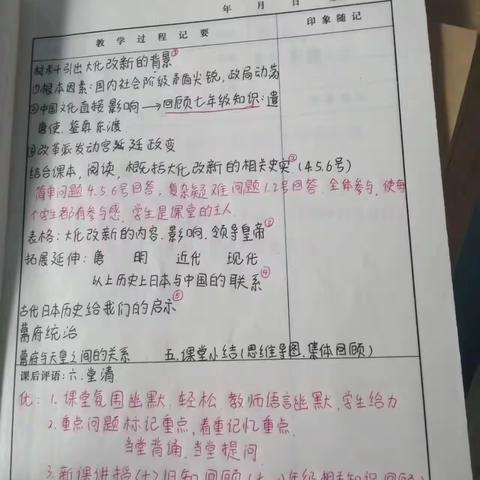 年 月 日
教学过程记要 印象随记
教材引出大化改新的背景①
①根本因素:国内社会阶级矛盾尖锐,政局动荡
②中国文化直接影响→回顾七年级知识:遣
唐使.鉴真东渡
③改革派发动宫廷政变
结合课本,阅读,概括大化改新的相关史实②(4.5.6号)
简单问题4.5.6号回答.复杂疑难问题1.2号回答.全体参与,使每
个学生都有参与感.学生是课堂的主人.
表格:大化改新的内容.影响.领导皇帝③
拓展延伸:唐 明 近代 现代
以上历史上日本与中国的联系④
古代日本历史给我们的启示⑤
幕府统治
幕府与天皇之间的关系 五.课堂小结(思维导图.集体回顾)
课后评语:六.堂清
优:1.课堂氛围幽默.轻松 教师语言幽默,学生给力
2.重点问题标记重点,着重记忆重点.
当堂背诵.当堂提问
3.新课讲授(+)旧知回顾(七.八年级相关知识回顾)